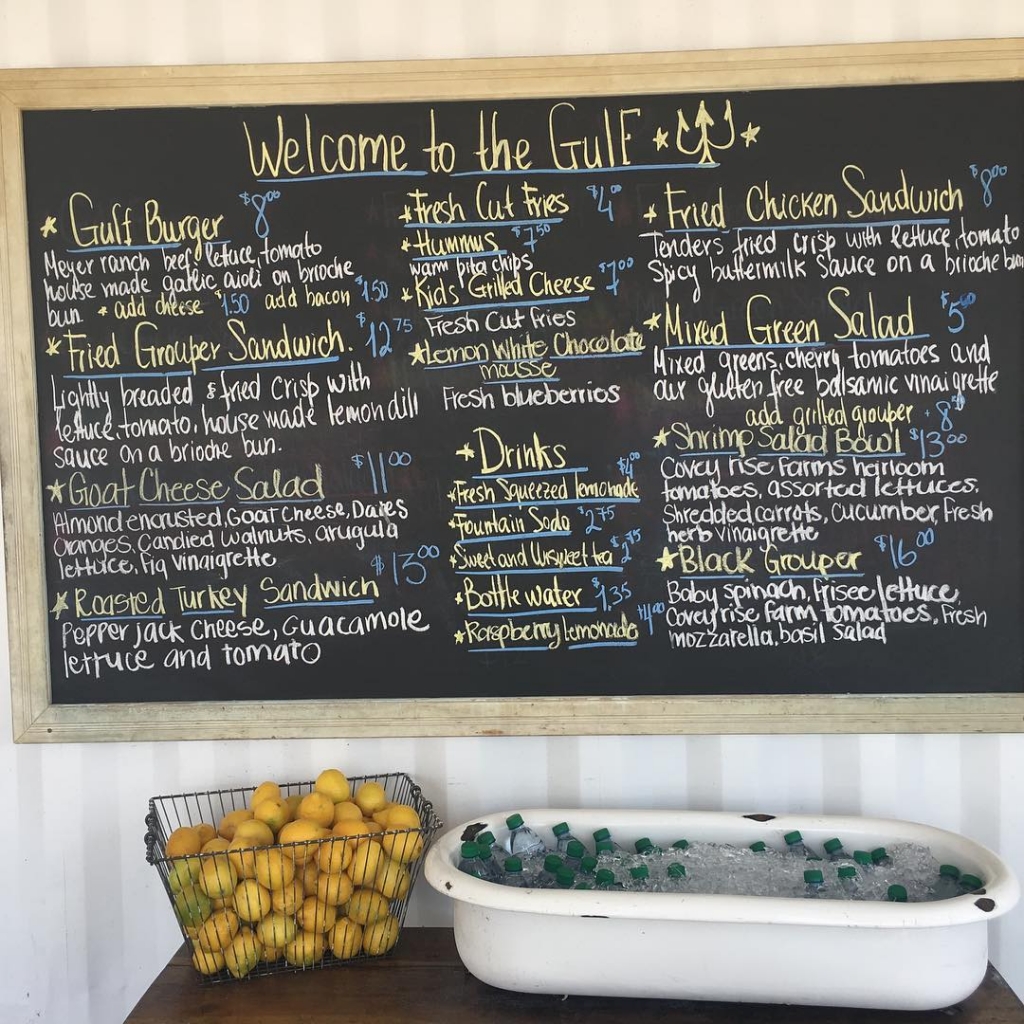 Welcome to the Gulf
Gulf Burger $8.00
Meyer ranch beef, lettuce, tomato
house made garlic aioli on brioche
bun. * add cheese $1.50 add bacon $1.50
Fried Grouper Sandwich. $12.75
Lightly breaded & fried crisp with
lettuce, tomato, house made lemon dill
sauce on a brioche bun.
Goat Cheese Salad $11.00
Almond encrusted, Goat Cheese, Dates
Oranges, Candied Walnuts, arugula
lettuce, Fig vinaigrette
Roasted Turkey Sandwich $13.00
Pepper jack Cheese, Guacamole
lettuce and tomato
Fresh Cut Fries $4.00
Hummus $7.50
warm pita chips
Kids' Grilled Cheese $7.00
Fresh Cut Fries
Lemon White Chocolate
mousse
Fresh blueberries
Drinks
Fresh Squeezed lemonade $4.00
Fountain Soda $2.75
Sweet and Unsweet tea $2.75
Bottle water 1.35
Raspberry lemonade $4.00
Fried Chicken Sandwich $8.00
Tenders fried crisp with lettuce, tomato
Spicy buttermilk Sauce on a brioche bun
Mixed Green Salad
Mixed greens, cherry tomatoes and
our gluten free balsamic vinaigrette
add grilled grouper
Shrimp Salad Bowl $13.00
Covey rise Farms heirloom
tomatoes, assorted lettuces,
Shredded carrots, Cucumber, Fresh
herb vinaigrette
Black Grouper $16.00
Baby spinach, Frisee lettuce,
Covey rise Farm tomatoes, Fresh
mozzarella, basil Salad